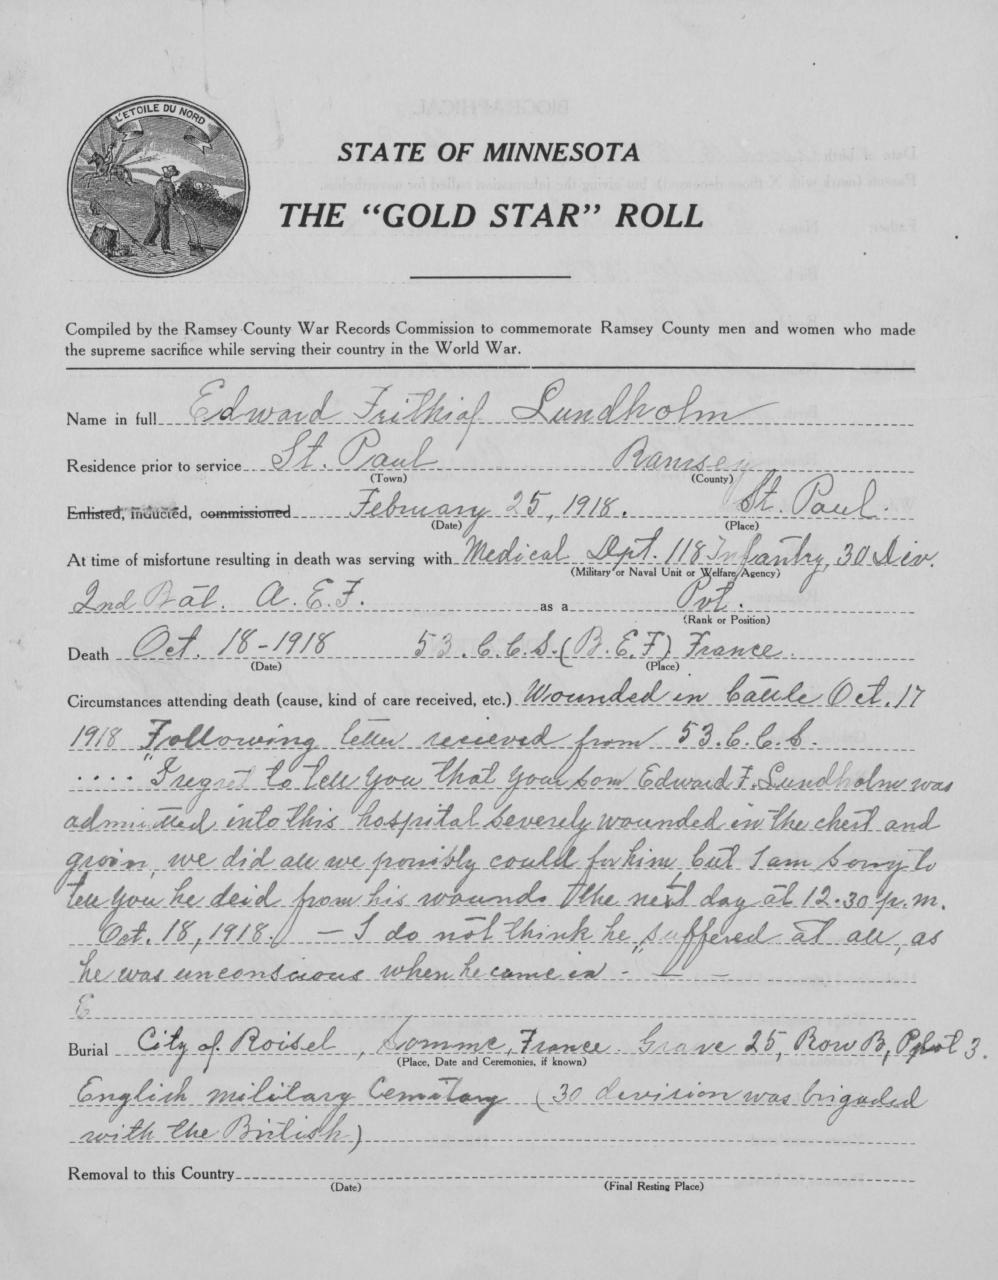 L'ETOILE DU NORD
STATE OF MINNESOTA
THE “GOLD STAR” ROLL
Compiled by the Ramsey County War Records Commission to commemorate Ramsey County men and women who made
the supreme sacrifice while serving their country in the World War.
Name in full Edward Frithiof Lundholm
Residence prior to service St. Paul Ramsey
(Town) (County)
Enlisted, inducted, commissioned February 25, 1918. St. Paul.
(Date) (Place)
At time of misfortune resulting in death was serving with Medical Dpt. 118 Infantry, 30 Div.
(Military or Naval Unit or Welfare Agency)
2nd Bat. A.E.F. as a Pvt.
(Rank or Position)
Death Oct. 18-1918 53.C.C.S.(B.E.F) France.
(Date) (Place)
Circumstances attending death (cause, kind of care received, etc.) Wounded in battle Oct. 17
1918 Following letter recieved from 53.C.C.S.
.... "I regret to tell you that your son Edward F. Lundholm was
admitted into this hospital severely wounded in the chest and
groin, we did all we possibly could for him, but I am sorry to
tell you he deid from his wounds the next day at 12.30 p.m.
Oct. 18, 1918. — I do not think he suffered at all, as
he was unconscious when he came in - — —
E
Burial City of Roisel, Somme, France. Grave 25, Row B, Plot 3.
(Place, Date and Ceremonies, if known)
English military Cemetary (30 division was brigaded
with the British)
Removal to this Country
(Date) (Final Resting Place)